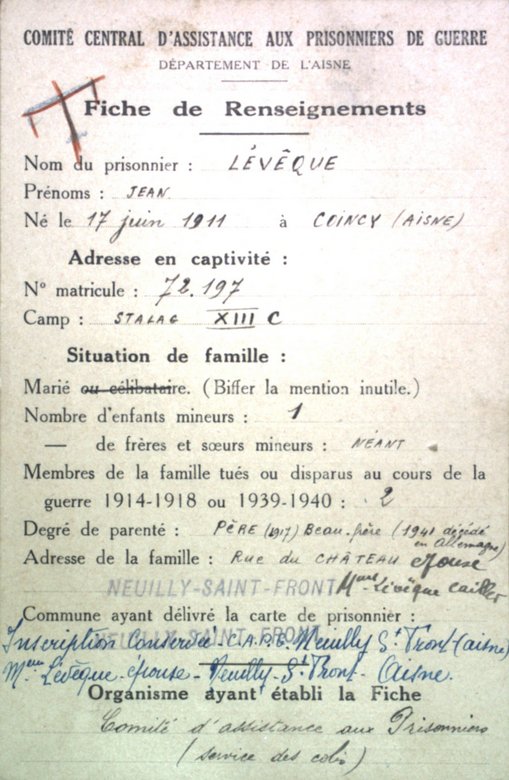 COMITÉ CENTRAL D'ASSISTANCE AUX PRISONNIERS DE GUERRE
DÉPARTEMENT DE L'AISNE
Fiche de Renseignements
Nom du prisonnier : LÉVÊQUE
Prénoms : JEAN
Né le 17 juin 1911 à COINCY (AISNE)
Adresse en captivité :
N° matricule : 72.197
Camp : STALAG XIII C
Situation de famille :
Marié ou célibataire. (Biffer la mention inutile.)
Nombre d'enfants mineurs : 1
— de frères et sœurs mineurs : NÉANT
Membres de la famille tués ou disparus au cours de la
guerre 1914-1918 ou 1939-1940 : 2
Degré de parenté : PÈRE (1917) Beau-frère (1941 décédé
en Allemagne)
Adresse de la famille : Rue du CHÂTEAU Epouse
NEUILLY-SAINT-FRONT Mme Lévêque Caillet
Commune ayant délivré la carte de prisonnier :
NEUILLY-SAINT-FRONT
Inscription Conservée C.A.P.G. Neuilly St Front (aisne)
Mme Lévêque épouse - Neuilly - St Front - Aisne.
Organisme ayant établi la Fiche
Comité d'assistance aux Prisonniers
(service des colis)